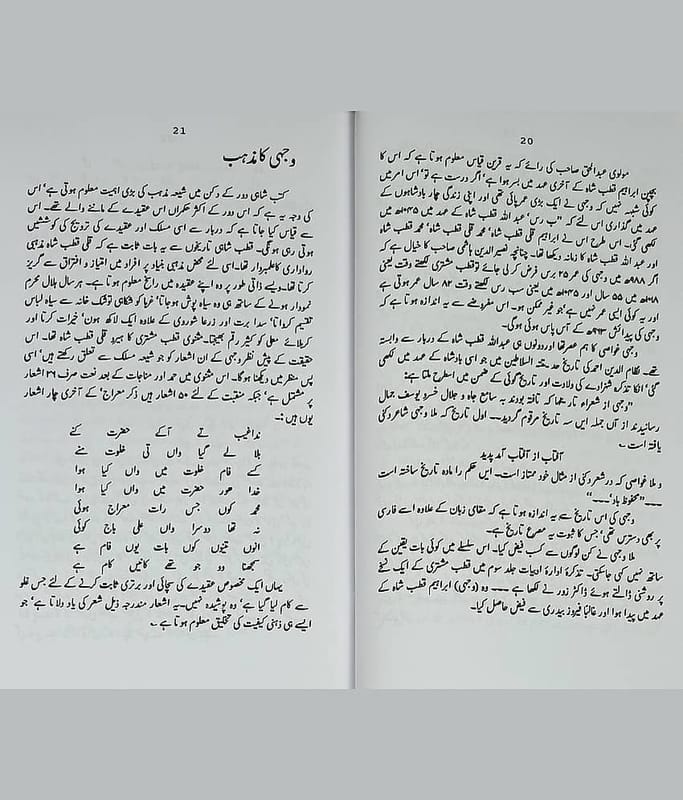 20
مولوی عبدالحق صاحب کی رائے کہ یہ قرین قیاس معلوم ہوتا ہے کہ اس کا
بچپن ابراہیم قطب شاہ کے آخری عہد میں بسر ہوا ہے' اگر درست ہے تو' اس امر میں
کوئی شبہ نہیں کہ وجہی نے ایک بڑی عمر پائی تھی اور اپنی زندگی چار بادشاہوں کے
عہد میں گذاری اس لئے کہ "سب رس" عبداللہ قطب شاہ کے عہد میں ۱۰۴۵ھ میں
لکھی گئی۔ اس طرح اس نے ابراہیم قلی قطب شاہ' محمد قلی قطب شاہ' محمد قطب شاہ
اور عبداللہ قطب شاہ کا زمانہ دیکھا تھا۔ چنانچہ نصیر الدین ہاشمی صاحب کا خیال ہے کہ
اگر ۹۸۸ھ میں وجہی کی عمر ۲۵ برس فرض کر لی جائے تو قطب مشتری لکھتے وقت یعنی
۱۰۱۸ھ میں ۵۵ سال اور ۱۰۴۵ھ میں یعنی سب رس لکھتے وقت ۸۲ سال عمر ہوتی ہے
اور یہ کوئی ایسی عمر نہیں ہے' جو غیر ممکن ہو۔ اس مفروضے سے یہ اندازہ ہوتا ہے کہ
وجہی کی پیدائش ۹۶۳ھ کے آس پاس ہوئی ہوگی۔
وجہی غواصی کا ہم عصر تھا اور دونوں ہی عبداللہ قطب شاہ کے دربار سے وابستہ
تھے۔ نظام الدین احمد کی تاریخ حدیقتہ السلاطین میں جو اسی بادشاہ کے عہد میں لکھی
گئی' انکا تذکرہ شہزادے کی ولادت اور تاریخ گوئی کے ضمن میں اسطرح ملتا ہے:
"وجہی از شعراء تاریخہا کہ تافتہ بودند بہ سامع جاہ و جلال خسرو یوسف جمال
رسانیدند از آں جملہ ایں سہ تاریخ مرقوم گردید۔۔ اول تاریخ کہ ملا وجہی شاعر دکنی
یافتہ است ؎
آفتاب از آفتاب آمد پدید
و ملا غواصی کہ در شعر دکنی از مثال خود ممتاز است۔ ایں حکم را مادہ تاریخ ساختہ است
۔۔۔ "محفوظ باد"۔۔۔"
وجہی کی اس تاریخ سے یہ اندازہ ہوتا ہے کہ مقامی زبان کے علاوہ اسے فارسی
پر بھی دسترس تھی' جس کا ثبوت یہ مصرع تاریخ ہے۔
ملا وجہی نے کن لوگوں سے کسب فیض کیا۔ اس سلسلے میں کوئی بات یقین کے
ساتھ نہیں کہی جاسکتی۔ تذکرۂ ادارۂ ادبیات جلد سوم میں قطب مشتری کے ایک نسخے
پر روشنی ڈالتے ہوئے ڈاکٹر زور نے لکھا ہے ۔۔۔ وہ (وجہی) ابراہیم قطب شاہ کے
عہد میں پیدا ہوا اور غالبا فیروز بیدری سے فیض حاصل کیا۔
21
وجہی کا مذہب
کتب شاہی دور کے دکن میں شیعہ مذہب کی بڑی اہمیت معلوم ہوتی ہے' اس
کی وجہ یہ ہے کہ اس دور کے اکثر حکمراں اس عقیدے کے ماننے والے تھے۔ اس
سے قیاس کیا جاتا ہے کہ دربار سے اسی مسلک اور عقیدے کی ترویج کی کوششیں
ہوتی رہی ہونگی۔ قطب شاہی تاریخوں سے یہ بات ثابت ہے کہ قلی قطب شاہ مذہبی
رواداری کا علمبردار تھا۔ اسی لئے محض مذہبی بنیاد پر افراد میں امتیاز و افتراق سے گریز
کرتا تھا۔ ویسے ذاتی طور پر وہ اپنے عقیدہ میں راسخ معلوم ہوتا ہے۔ ہر سال ہلال محرم
نمودار ہونے کے ساتھ ہی وہ سیاہ پوش ہو جاتا' غربا کو شاہی توشک خانہ سے سیاہ لباس
تقسیم کرواتا' سدا برت اور زرعا شوروی کے علاوہ ایک لاکھ ہون' خیرات کرتا اور
کربلائے معلی کو کثیر رقم بھیجتا۔ مثنوی قطب مشتری کا ہیرو قلی قطب شاہ تھا۔ اس
حقیقت کے پیش نظر وجہی کے ان اشعار کو جو شیعہ مسلک سے تعلق رکھتے ہیں' اسی
پس منظر میں دیکھنا ہوگا۔ اس مثنوی میں حمد اور مناجات کے بعد نعت صرف ۲۹ اشعار
پر مشتمل ہے' جبکہ منقبت کے لئے ۵۰ اشعار ہیں ذکر معراج' کے آخری چار اشعار
یوں ہیں :۔
ندا غیب تے آ کے حضرت کنے
بلا لے گیا واں تی خلوت منے
کسے فام خلوت میں واں کیا ہوا
خدا ہور حضرت میں واں کیا ہوا
محمد کوں جس رات معراج ہوئی
نہ تھا دوسرا واں علی باج کوئی
انوں تینوں کوں بات یوں فام ہے
سمجھنا دو جو تھے کانیں کام ہے
یہاں ایک مخصوص عقیدے کی سچائی اور برتری ثابت کرنے کے لئے جس غلو
سے کام لیا گیا ہے' وہ پوشیدہ نہیں۔ یہ اشعار مندرجہ ذیل شعر کی یاد دلاتا ہے' جو
ایسے ہی ذہنی کیفیت کی تخلیق معلوم ہوتا ہے ؎